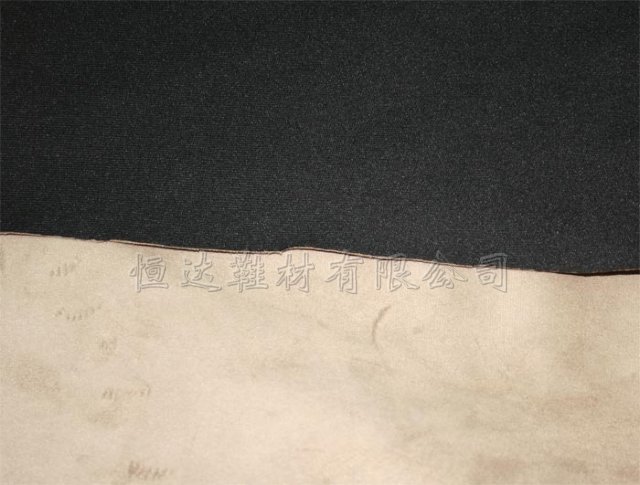 恒达鞋材有限公司